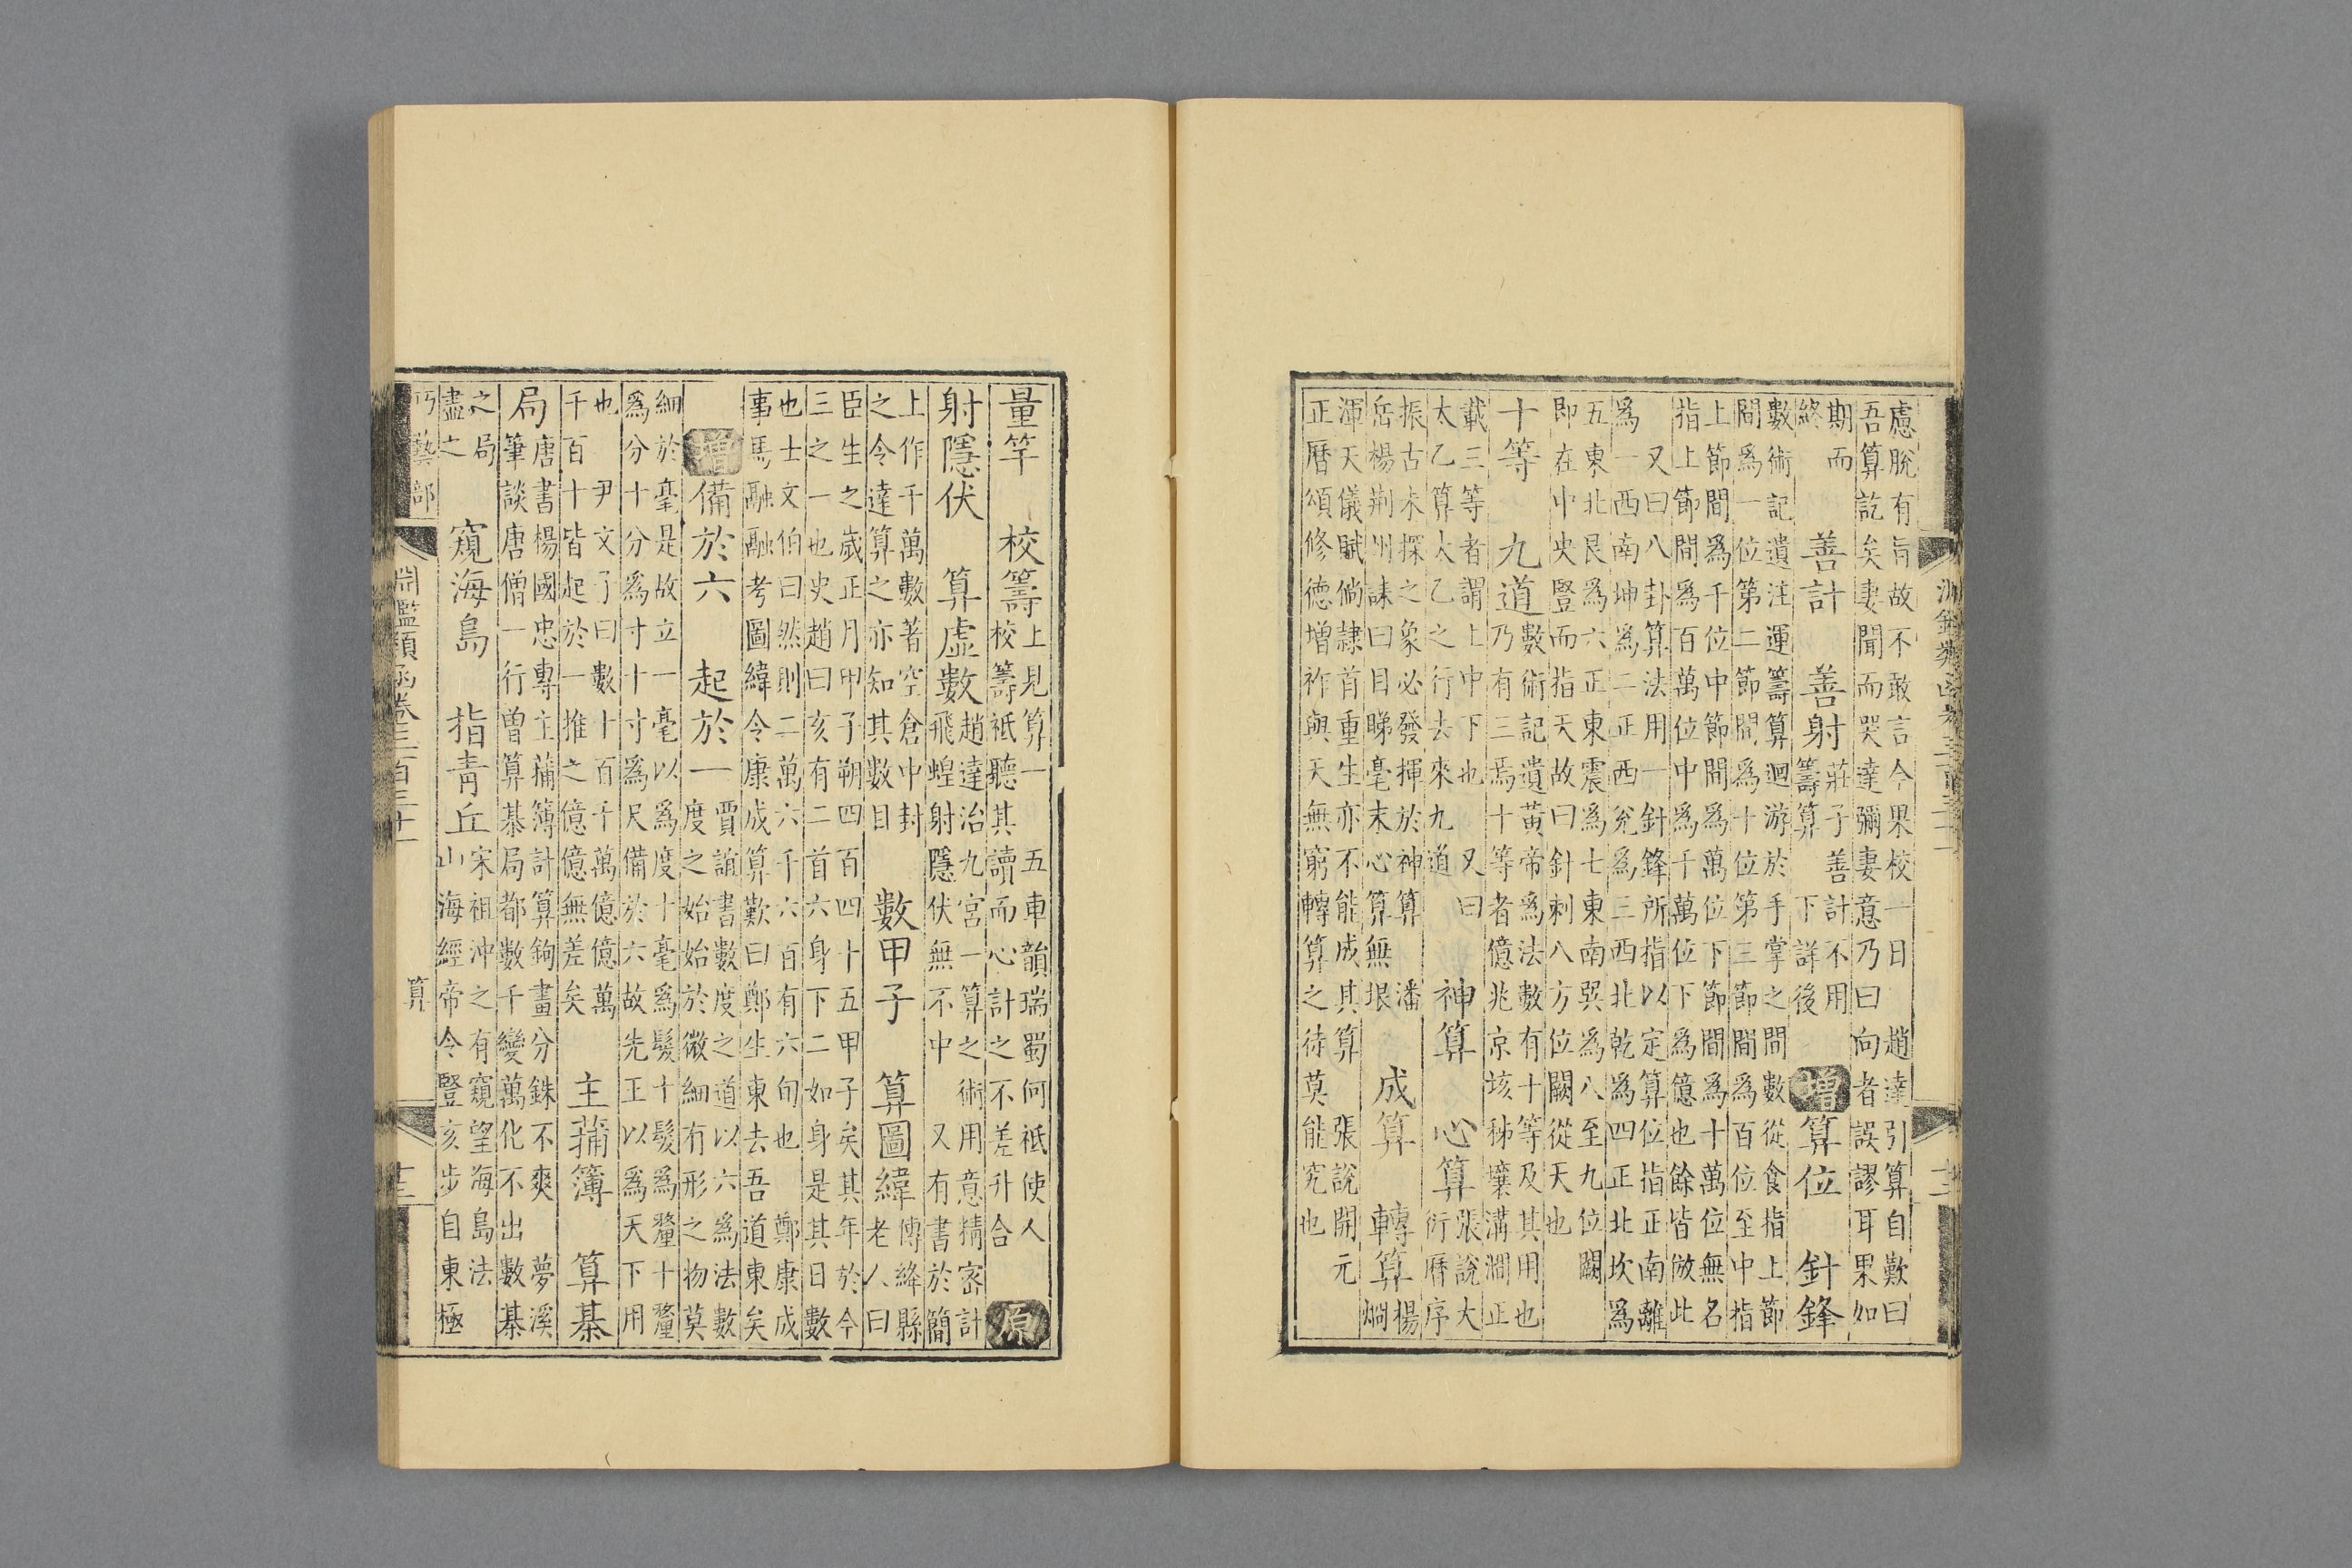 慮脫有旨故不敢言今果校一日 趙達引算自歎曰
吾算訖矣妻聞而哭達彌妻意乃曰向者誤謬耳果如
期而
終
善計 善射
莊子善計不用
籌算 下詳後
增 算位 針鋒
數術記遺注運籌算迴游於手掌之間數從食指上節
間爲一位第二節間爲十位第三節間爲百位至中指
上節間爲千位中節間爲萬位下節間爲十萬位無名
指上節間爲百萬位中爲千萬位下爲億也餘皆倣此
又曰八卦算法用一針鋒所指以定算位指正南離
爲一西南坤爲二正西兌爲三西北乾爲四正北坎爲
五東北艮爲六正東震爲七東南巽爲八至九位闕
即在中央豎而指天故曰針刺八方位闕從天也
十等 九道
數術記遺黃帝爲法數有十等及其用也
乃有三焉十等者億兆京垓秭壤溝澗正
載三等者謂上中下也 又曰
太乙算太乙之行去來九道
神算 心算
張說大
衍曆序
振古未探之象必發揮於神算 潘
岳楊荆州誄曰目睇毫末心算無垠
成算 轉算
楊
烱
渾天儀賦倘隸首重生亦不能成其算 張說開元
正曆頌修德增祚與天無窮轉算之徒莫能究也
量竿 校籌
上見算一 五車韻瑞蜀何祗使人
校籌祗聽其讀而心計之不差升合
原
射隱伏 算虛數
趙達治九宮一算之術用意精密計
飛蝗射隱伏無不中 又有書於簡
上作千萬數著空倉中封
之令達算之亦知其數目
數甲子 算圖緯
傳絳縣
老人曰
臣生之歲正月甲子朔四百四十五甲子矣其年於今
三之一也史趙曰亥有二首六身下二如身是其日數
也士文伯曰然則二萬六千六百有六旬也 鄭康成
事馬融融考圖緯令康成算歎曰鄭生東去吾道東矣
增 備於六 起於一
賈誼書數度之道以六爲法數
度之始始於微細有形之物莫
細於毫是故立一毫以爲度十毫爲髮十髮爲釐十釐
爲分十分爲寸十寸爲尺備於六故先王以爲天下用
也 尹文子曰數十百千萬億億萬
千百十皆起於一推之億億無差矣
主蒱簿 算棊
局
唐書楊國忠專主蒱簿計算鉤畫分銖不爽 夢溪
筆談唐僧一行曾算棊局都數千變萬化不出數棊
之局
盡之
窺海島 指青丘
宋祖沖之有窺望海島法
山海經帝令豎亥步自東極
巧藝部
淵鑑類函卷三百三十一
算